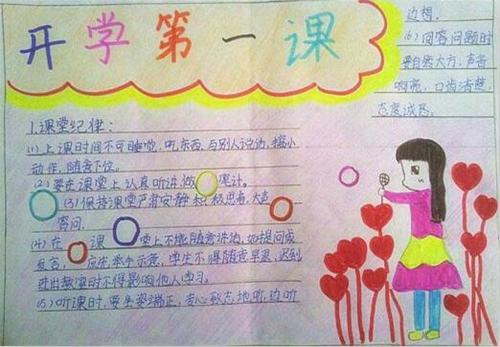 开学第一课
1.课堂纪律:
(1)上课时间不可睡觉,吃东西,与别人说话,搞小
动作,随意下位。
(2)要在课堂上认真听讲,做 笔记。
(3)保持课堂严肃安静,积极思考,大声
答问.
(4)在 课 堂上不能随意讲话,如提问或
发言, 应先举手示意,学生不得随意早退,迟到
进出教室时不得影响他人学习。
(5)听课时,要坐姿端正,专心致志地听,边听
边想.
(6)回答问题时
要自然大方,声音
响亮,口齿清楚,
态度诚恳。